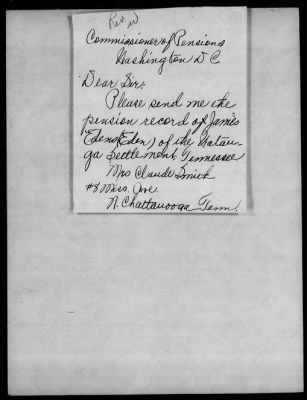 Rev. W
Commissioner of Pensions
Washington D C
Dear Sir:
Please send me the
pension record of James
Edens (Eden) of the Watau-
ga Settlement Tennessee
Mrs Claude Smith
#8 Miss. Ave
N. Chattanooga Tenn.